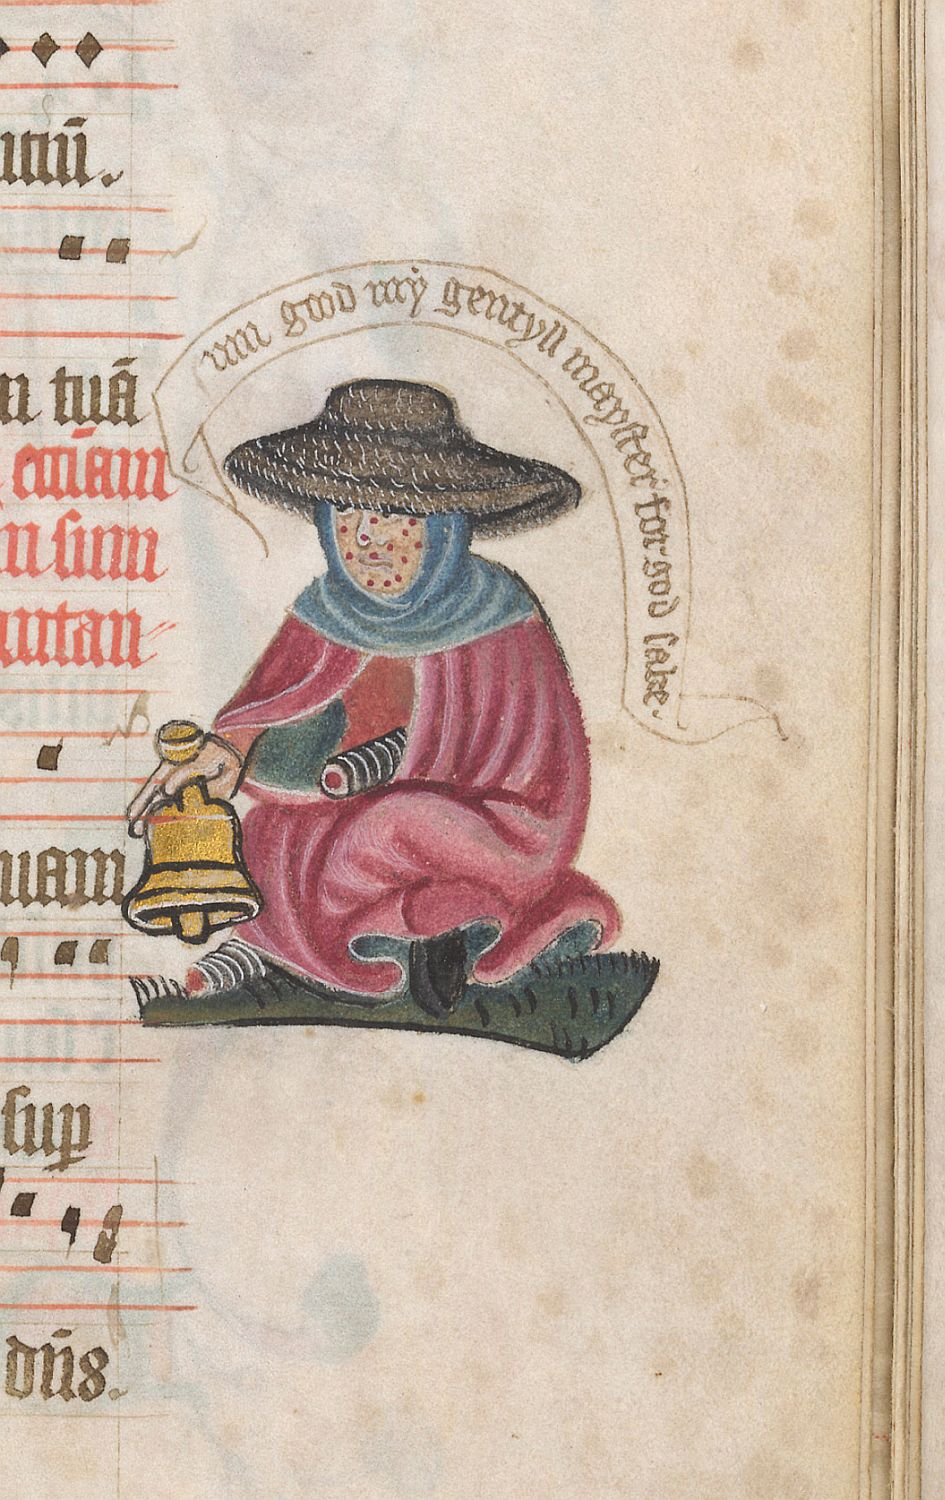 n tuā
etiam
n sum
uam
sup
dn̄s.
um good my gentyll mayster for god sake.